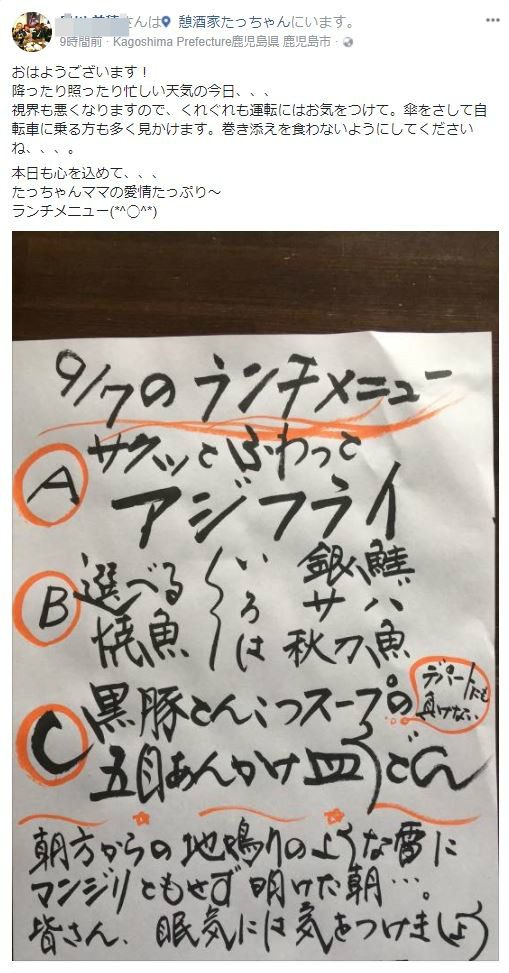 さんは 憩酒家たっちゃんにいます。
9時間前・Kagoshima Prefecture鹿児島県 鹿児島市・
おはようございます！
降ったり照ったり忙しい天気の今日、、、
視界も悪くなりますので、くれぐれも運転にはお気をつけて。傘をさして自
転車に乗る方も多く見かけます。巻き添えを食わないようにしてください
ね、、、。
本日も心を込めて、、、
たっちゃんママの愛情たっぷり～
ランチメニュー(*^○^*)
9/7の ランチメニュー
A サクッとふわっと
アジフライ
B 選べる
焼魚
い 銀鮭
ろ サバ
は 秋刀魚
C 黒豚とんこつスープの
デパートにも
負けない
五目あんかけ皿うどん
朝方からの地鳴りのような雷に
マンジリともせず 明けた朝…。
皆さん、眠気には気をつけましょう